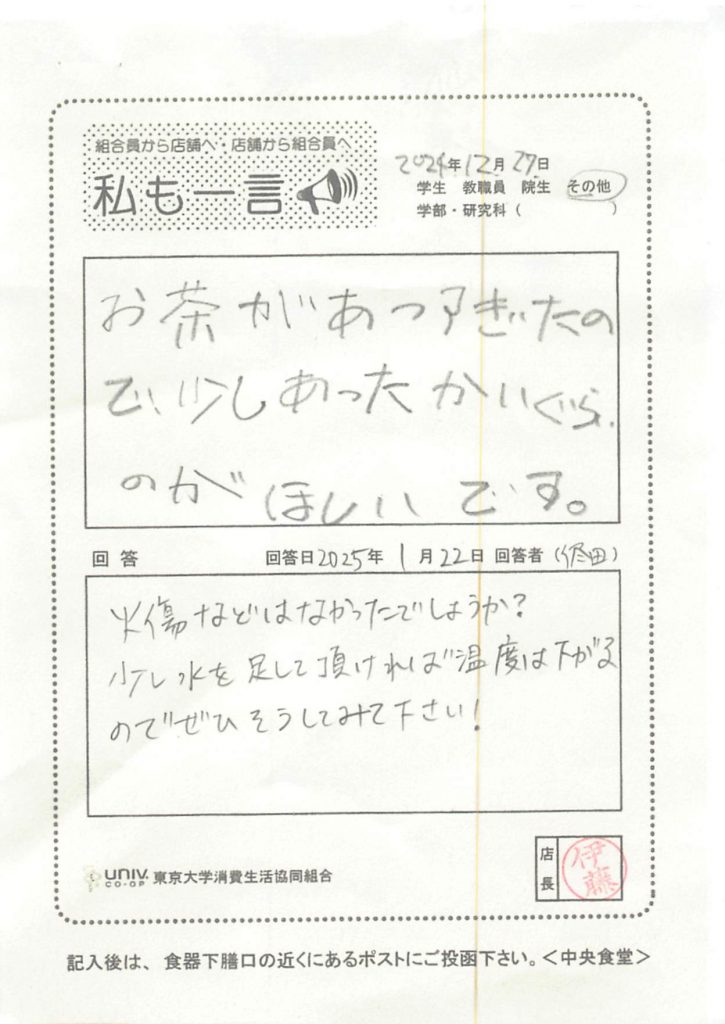 組合員から店舗へ・店舗から組合員へ
私も一言
2024年12月27日
学生 教職員 院生 その他
学部・研究科（ ）
お茶があつすぎたの
で、少しあったかいぐら
のが ほしい です。
回答 回答日2025年1月22日 回答者（ 田）
火傷などはなかったでしょうか？
少し水を足して頂ければ温度は下がる
のでぜひそうしてみて下さい！
店長 伊藤
UNIV. CO-OP 東京大学消費生活協同組合
記入後は、食器下膳口の近くにあるポストにご投函下さい。＜中央食堂＞